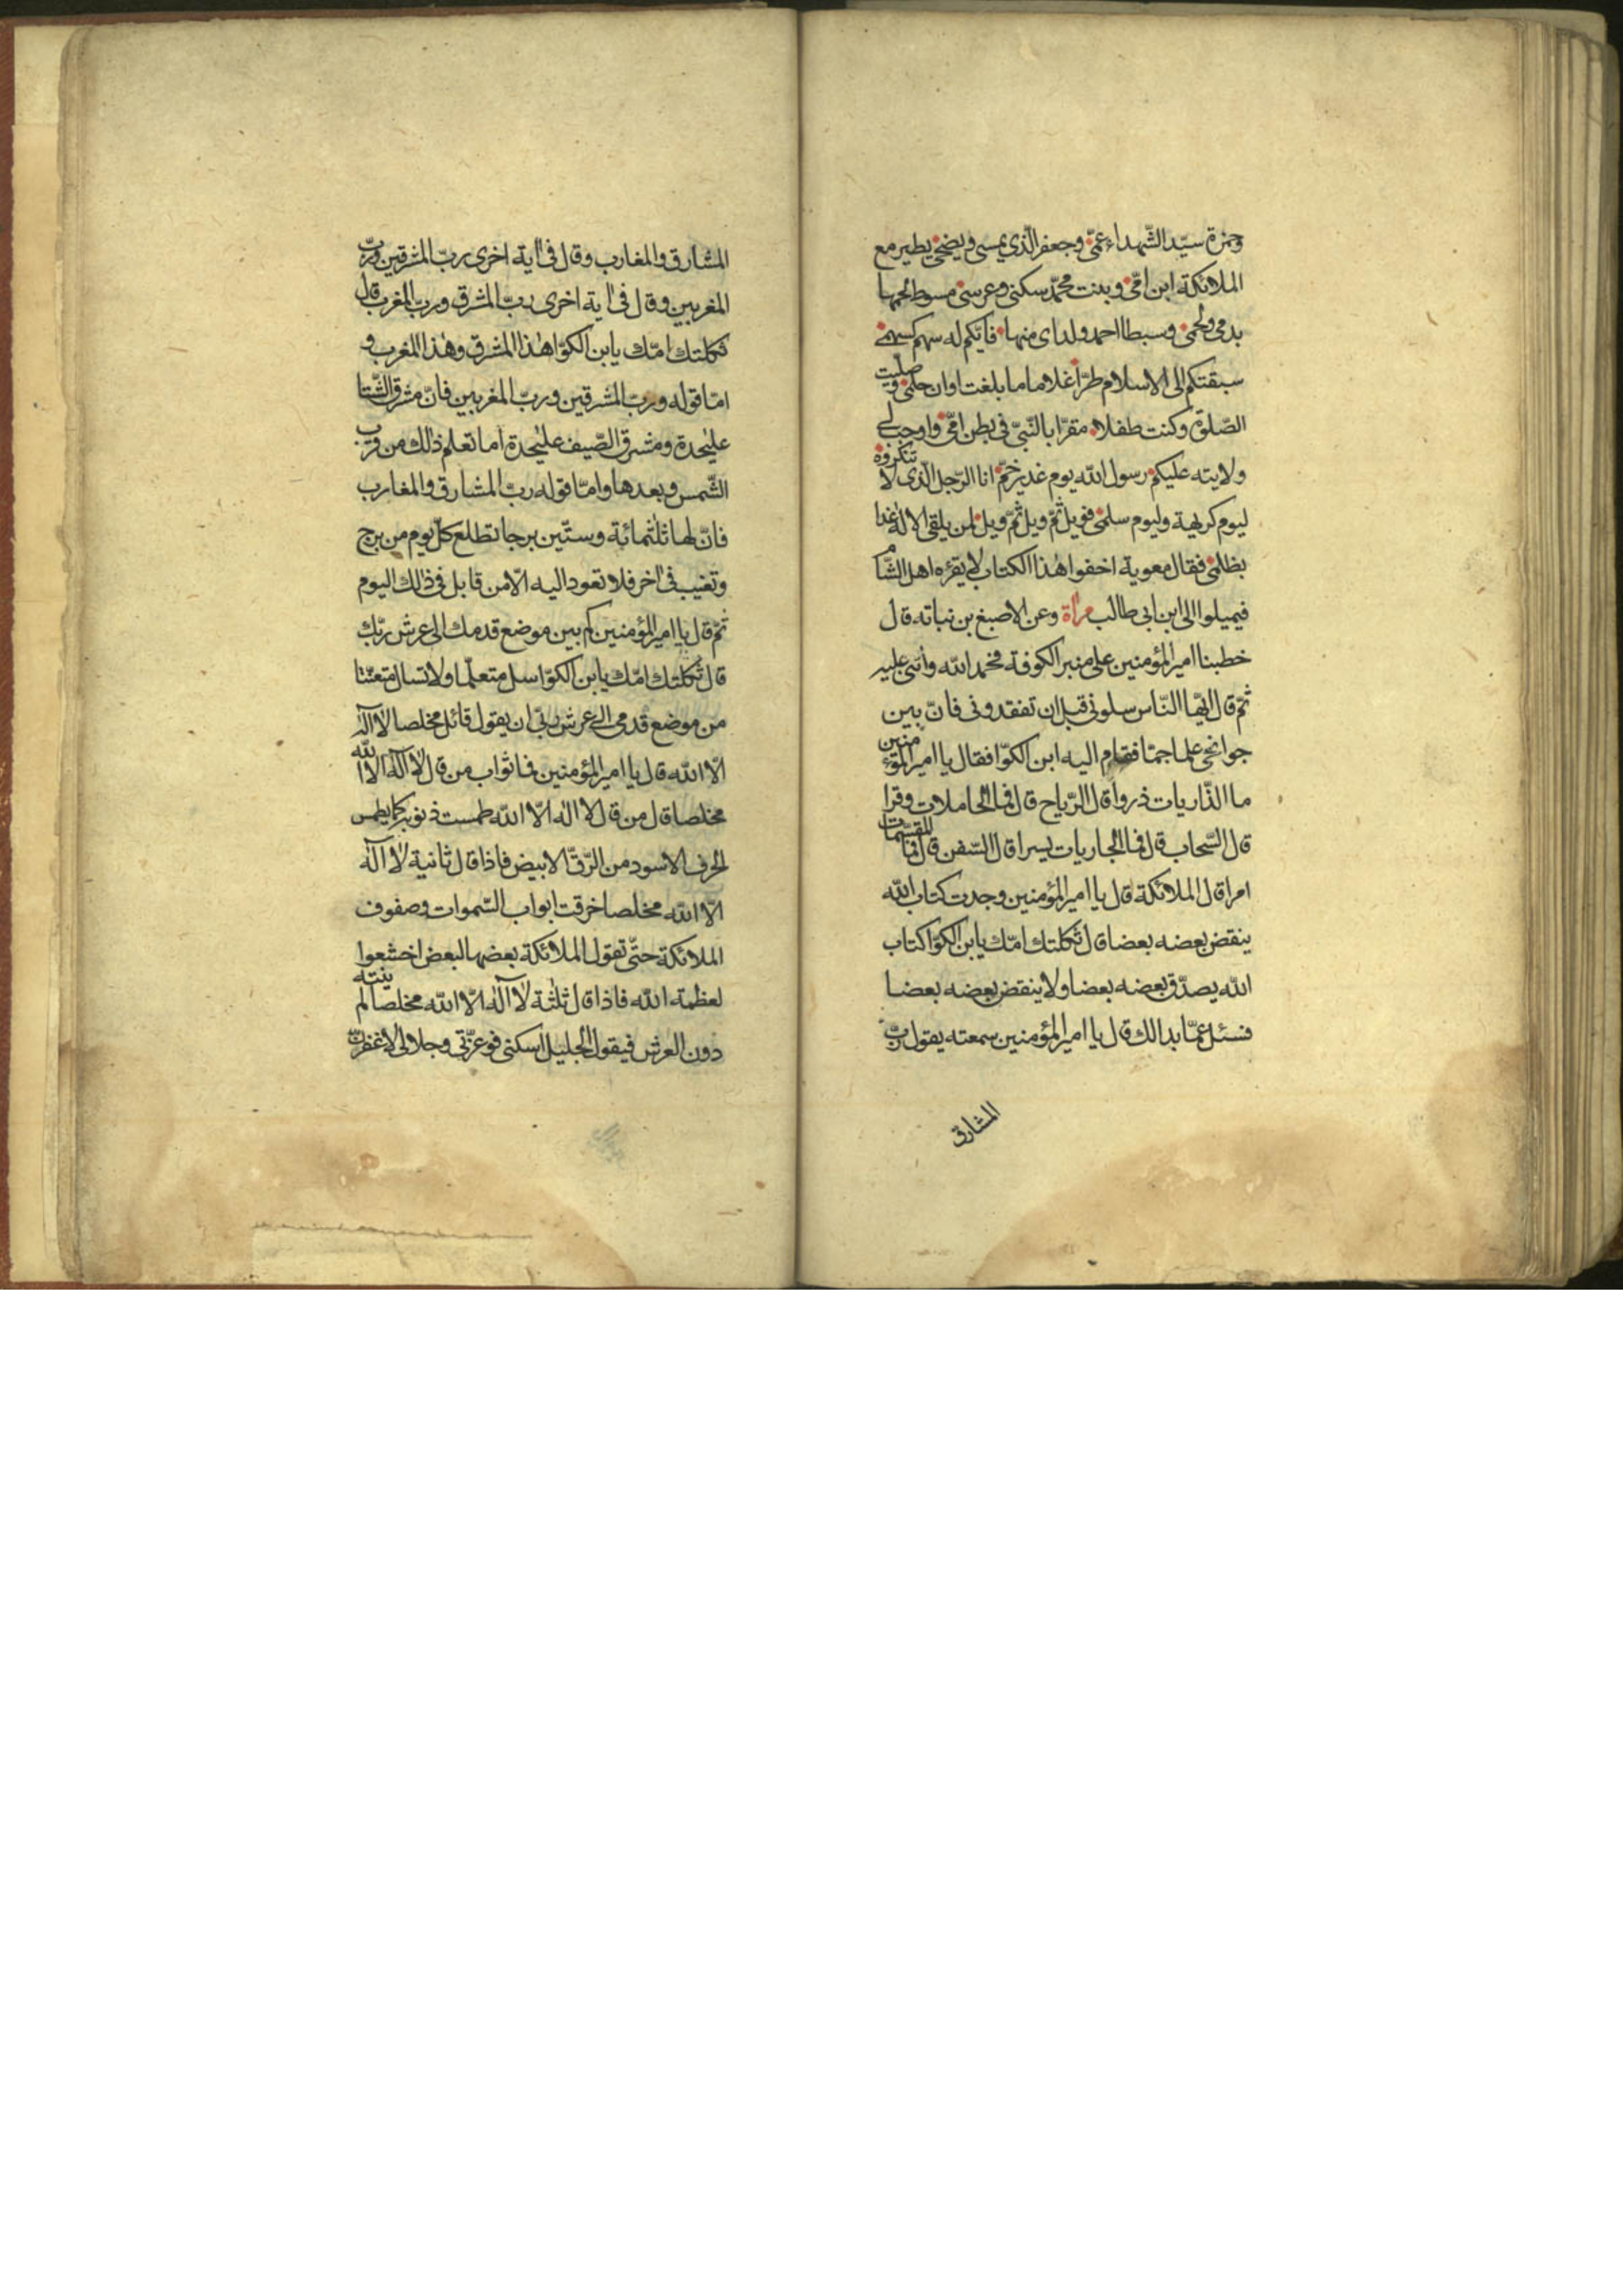 وحمزة سيّد الشّهداء عمّي وجعفر الّذي يمسي ويضحي يطير مع
الملائكة ابن امّي وبنت محمّد سكني وعرسي مسوط لحمها
بدمي ولحمي وسبطا احمد ولداى منها فايّكم له سهم كسهمي
سبقتكم الى الاسلام طرّا غلاما ما بلغت اوان حلمي وصلّيت
الصّلوة وكنت طفلا مقرّا بالنّبيّ في بطن امّي واوجب لى
ولايته عليكم رسول الله يوم غدير خمّ انا الرّجل الّذى لا تنكروه
ليوم كريهة وليوم سلمي فويل ثمّ ويل ثمّ ويل لمن يلقى الاله غدا
بظلمي فقال معوية اخفوا هذا الكتاب لا يقرءه اهل الشّام
فيميلوا الى ابن ابى طالب مرأة وعن الاصبغ بن نباته قال
خطبنا امير المؤمنين على منبر الكوفة فحمد الله واثنى عليه
ثمّ قال ايّها النّاس سلونى قبل ان تفقدونى فانّ بين
جوانحى علما جمّا فقام اليه ابن الكوّا فقال يا امير المؤمنين
ما الذّاريات ذروا قال الرّياح قال فما الحاملات وقرا
قال السّحاب قال فما الجاريات يسرا قال السّفن قال فما المقسّمات
امرا قال الملائكة قال يا امير المؤمنين وجدت كتاب الله
ينقض بعضه بعضا قال ثكلتك امّك يا بن الكوّا كتاب
الله يصدّق بعضه بعضا ولا ينقض بعضه بعضا
فسئل عمّا بدالك قال يا امير المؤمنين سمعته يقول ربّ
المشارق
المشارق والمغارب وقال فى اية اخرى ربّ المشرقين وربّ
المغربين وقال فى اية اخرى ربّ المشرق وربّ المغرب قال
ثكلتك امّك يا بن الكوّا هذا المشرق وهذا المغرب و
امّا قوله وربّ المشرقين وربّ المغربين فانّ مشرق الشّتا
عليحدة ومشرق الصّيف عليحدة اما تعلم ذالك من قرب
الشّمس وبعدها وامّا قوله ربّ المشارق والمغارب
فانّ لها ثلثمائة وستّين برجا تطلع كلّ يوم من برج
وتغيب فى اخر فلا تعود اليه الّا من قابل فى ذالك اليوم
ثمّ قال يا امير المؤمنين كم بين موضع قدمك الى عرش ربّك
قال ثكلتك امّك يا بن الكوّا سل متعلّما ولا تسال متعنّتا
من موضع قدمى الى عرش ربّى ان يقول قائل مخلصا لا اله
الّا الله قال يا امير المؤمنين فما ثواب من قال لا اله الّا الله
مخلصا قال من قال لا اله الّا الله طمست ذنوبه كما يطمس
الحرف الاسود من الرّقّ الابيض فاذا قال ثانية لا اله
الّا الله مخلصا خرقت ابواب السّموات وصفوف
الملائكة حتّى تقول الملائكة بعضها لبعض اخشعوا
لعظمة الله فاذا قال ثلثة لا اله الّا الله مخلصا لم ينته
دون العرش فيقول الجليل اسكنى فوعزّتى وجلالى لاغفرنّ